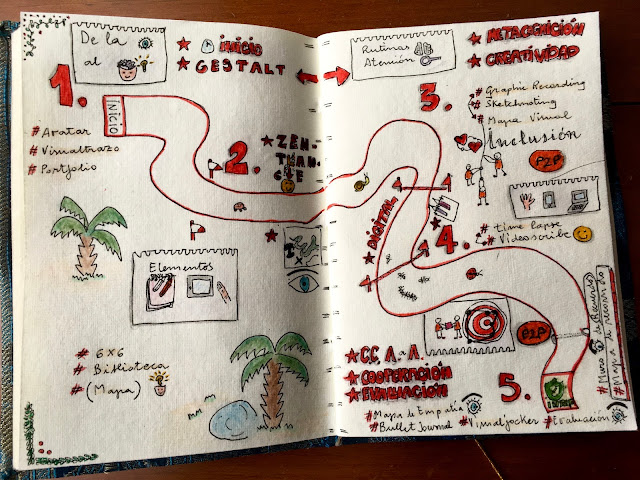 De la
al
★ inicio
★ GESTALT
1.
INICIO
# Avatar
# Visualtrazo
# Portfolio
2.
★ ZEN-
THAN-
GLE
Elementos
# 6x6
# Biblioteca
# (Mapa)
Rutinas
Atención
★ METACOGNICIÓN
★ CREATIVIDAD
3.
# Graphic Recording
# Sketchnoting
# Mapa Visual
Inclusión
P2P
★ DIGITAL
4.
# time lapse
# Videoscribe
P2P
★ CC. A.A.
★ COOPERACIÓN
★ EVALUACIÓN
5.
# Mapa de Empatía
# Bullet Journal
# Visualjocker
# Evaluación